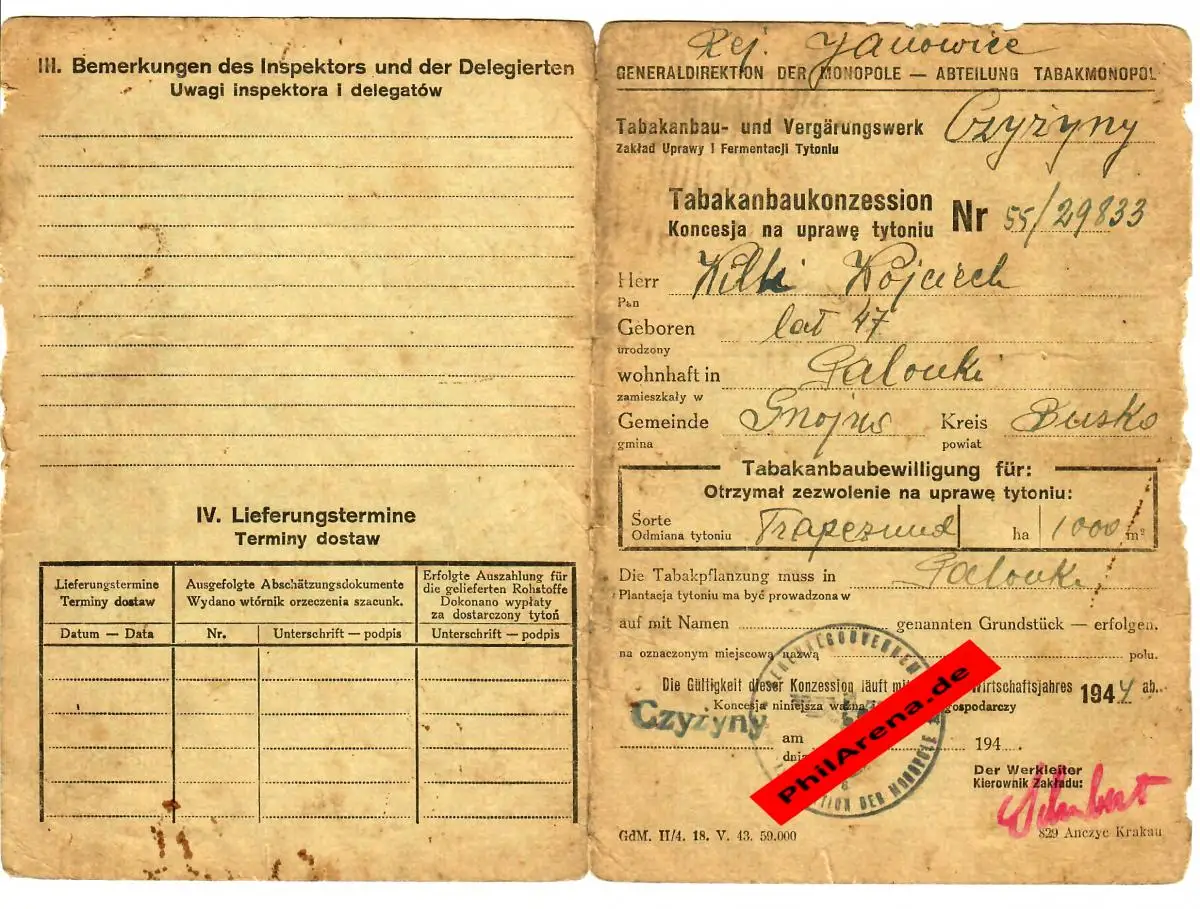 III. Bemerkungen des Inspektors und der Delegierten
Uwagi inspektora i delegatów
IV. Lieferungstermine
Terminy dostaw
Lieferungstermine
Terminy dostaw
Ausgefolgte Abschätzungsdokumente
Wydano wtórnik orzeczenia szacunk.
Erfolgte Auszahlung für
die gelieferten Rohstoffe
Dokonano wypłaty
za dostarczony tytoń
Datum — Data
Nr.
Unterschrift — podpis
Unterschrift — podpis
Rej. Janowice
GENERALDIREKTION DER MONOPOLE — ABTEILUNG TABAKMONOPOL
Tabakanbau- und Vergärungswerk Czyżyny
Zakład Uprawy i Fermentacji Tytoniu
Tabakanbaukonzession
Koncesja na uprawę tytoniu
Nr 55/29833
Herr Wilk Wojciech
Pan
Geboren lat 47
urodzony
wohnhaft in Palonki
zamieszkały w
Gemeinde Gnojno Kreis Busko
gmina powiat
Tabakanbaubewilligung für:
Otrzymał zezwolenie na uprawę tytoniu:
Sorte Trapezund ha 1000 m²
Odmiana tytoniu
Die Tabakpflanzung muss in Palonki
Plantacja tytoniu ma być prowadzona w
auf mit Namen genannten Grundstück — erfolgen.
na oznaczonym miejscową nazwą polu.
Die Gültigkeit dieser Konzession läuft mit Wirtschaftsjahres 1944 ab.
Koncesja niniejsza ważna gospodarczy
Czyżyny
am 194
dnia
Der Werkleiter
Kierownik Zakładu:
Schubert
GdM. II/4. 18. V. 43. 59.000
829 Anczyc Krakau
PhilArena.de